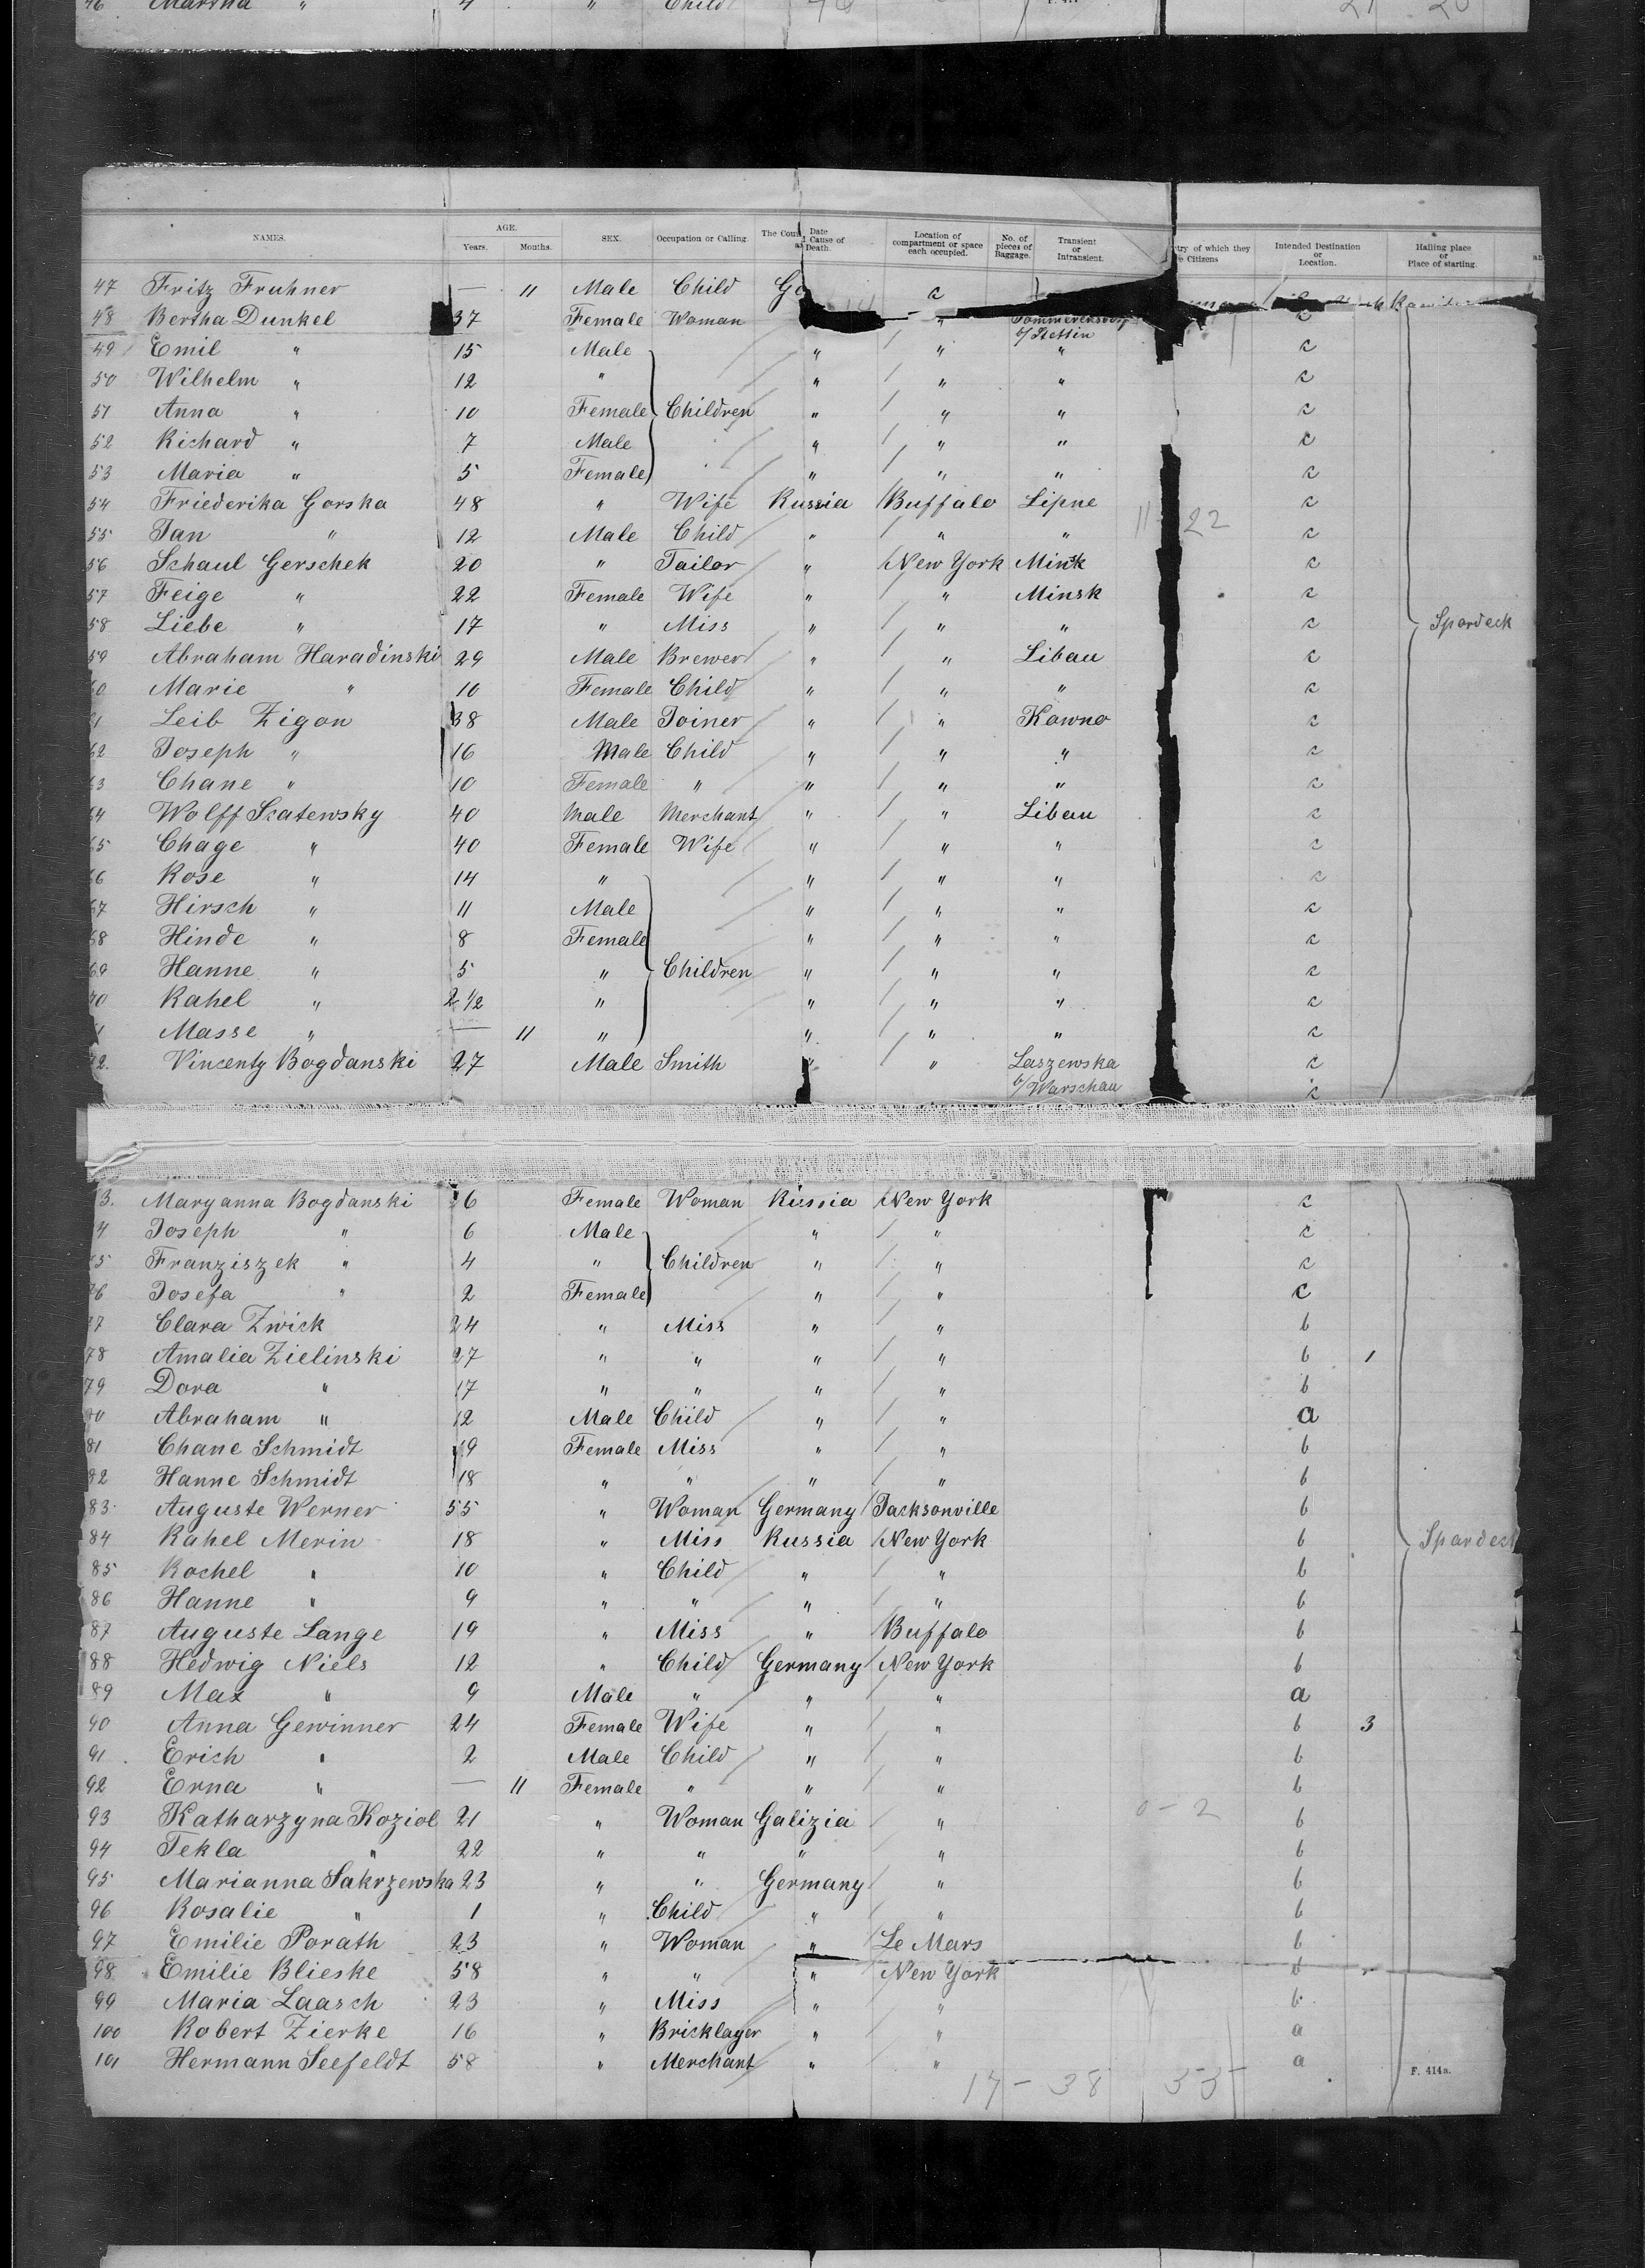 46 Martha " 4 " Child
NAMES. AGE. Years. Months. SEX. Occupation or Calling. The Coun Date Cause of Death. Location of compartment or space each occupied. No. of pieces of Baggage. Transient or Intransient. try of which they Citizens Intended Destination or Location. Hailing place or Place of starting.
47 Fritz Fruhner — 11 Male Child c
48 Bertha Dunkel 37 Female Woman " c
b/ Stettin
49 Emil " 15 Male " " " c
50 Wilhelm " 12 " " " " c
51 Anna " 10 Female Children " " " c
52 Richard " 7 Male " " " c
53 Maria " 5 Female " " " c
54 Friederika Gorska 48 " Wife Russia Buffalo Lipne c
11 22
55 Jan " 12 Male Child " " " c
56 Schaul Gerschek 20 " Tailor " New York Minsk c
57 Feige " 22 Female Wife " " Minsk c
58 Liebe " 17 " Miss " " " c Spardeck
59 Abraham Haradinski 29 Male Brewer " " Libau c
60 Marie " 10 Female Child " " " c
61 Leib Zigon 38 Male Joiner " " Kowno c
62 Joseph " 16 Male Child " " " c
63 Chane " 10 Female " " " " c
64 Wolff Scatewsky 40 Male Merchant " " Libau c
65 Chage " 40 Female Wife " " " c
66 Rose " 14 " " " " c
67 Hirsch " 11 Male " " " c
68 Hinde " 8 Female " " " c
69 Hanne " 5 " Children " " " c
70 Rahel " 2 1/2 " " " " c
71 Masse " — 11 " " " " c
72. Vincenty Bogdanski 27 Male Smith " " Laszewska c
b/ Warschau c
3. Maryanna Bogdanski 26 Female Woman Russia New York c
4 Joseph " 6 Male " " c
75 Franziszek " 4 " Children " " c
76 Josefa " 2 Female " " c
77 Clara Zwick 24 " Miss " " b
78 Amalia Zielinski 27 " " " " b 1
79 Dora " 17 " " " " b
80 Abraham " 12 Male Child " " a
81 Chane Schmidt 19 Female Miss " " b
82 Hanne Schmidt 18 " " " " b
83. Auguste Werner 55 " Woman Germany Jacksonville b
84 Rahel Merin 18 " Miss Russia New York b Spardeck
85 Rochel " 10 " Child " " b
86 Hanne " 9 " " " " b
87 Auguste Lange 19 " Miss " Buffalo b
88 Hedwig Niels 12 " Child Germany New York b
89 Max " 9 Male " " " a
90 Anna Gewinner 24 Female Wife " " b 3
91 Erich " 2 Male Child " " b
92 Erna " — 11 Female " " " b
93 Katharzyna Koziol 21 " Woman Galizia " 0 - 2 b
94 Tekla " 22 " " " " b
95 Marianna Sakrzewska 23 " " Germany " b
96 Rosalie " 1 " Child " " b
97 Emilie Porath 23 " Woman " Le Mars b
98 Emilie Blieske 58 " " " New York b
99 Maria Laasch 23 " Miss " " b
100 Robert Zierke 16 " Bricklayer " " a
101 Hermann Seefeldt 58 " Merchant " " a
F. 414a.
17 - 38 33